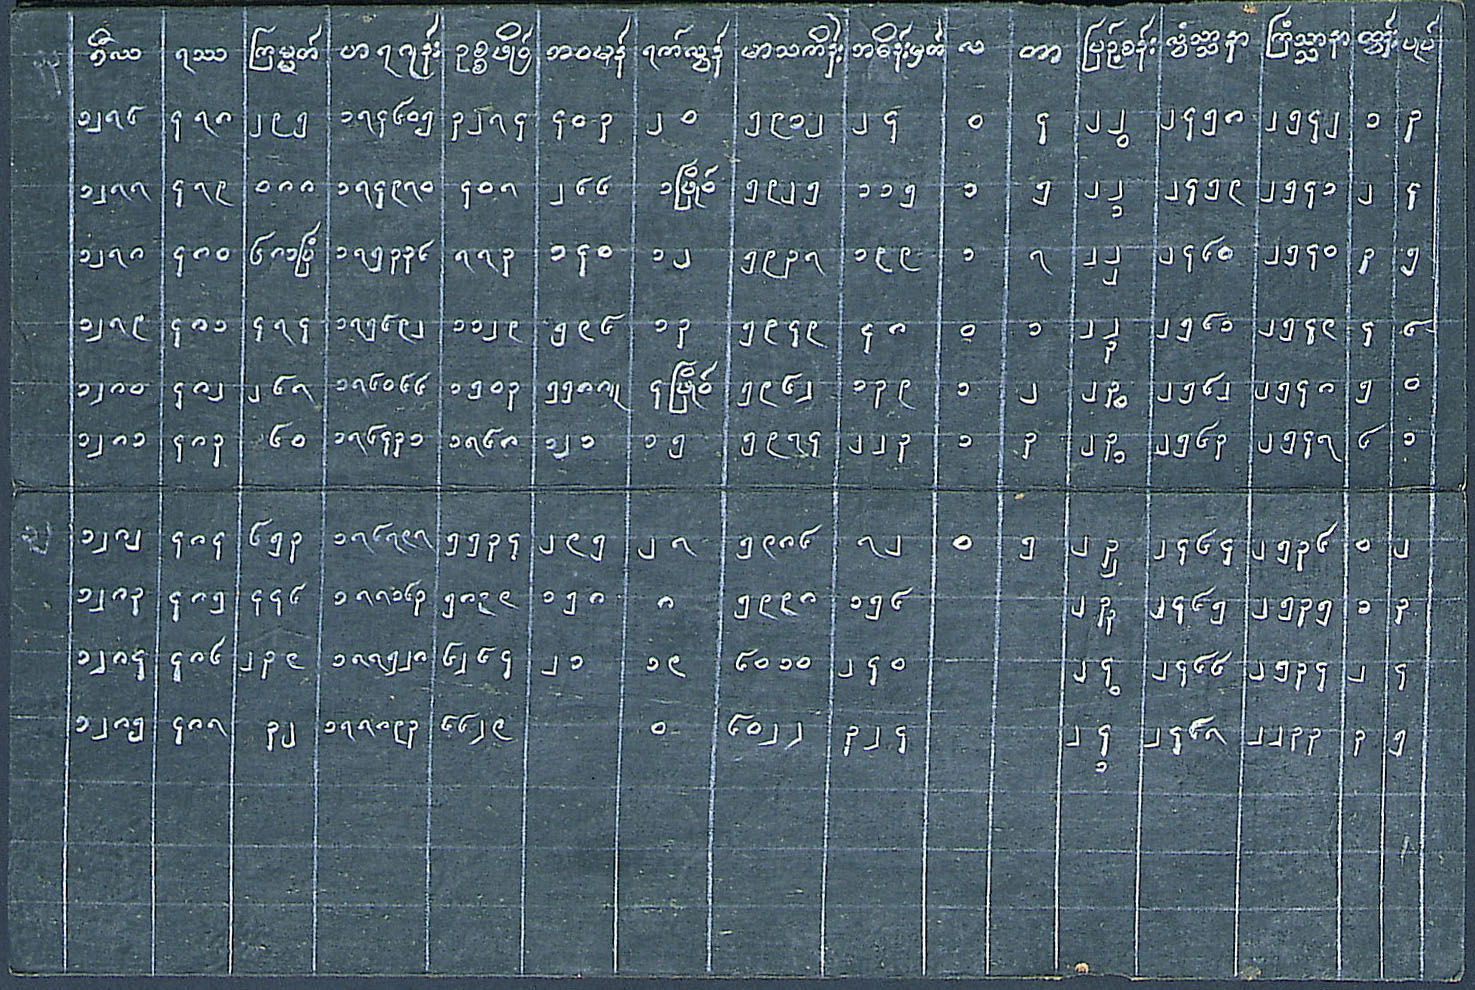 ဘိဿ ရဿ ကြမ္မတ် ဟာရဂုန်း ဥစ္စဗိုဝ် အဝမန် ရက်လွန် မာသကိန်း အဓိန်းမှတ် လ တာ ပြဉ့်စန်း လွံသ္သာနာ ကြံသ္သာနာ ထွန်း ပျပ်
၁၂၇၆ ၄၇၈ ၂၉၅ ၁၇၄၆၀၅ ၃၂၇၄ ၄၀၃ ၂၀ ၅၉၁၂ ၂၄ ၀ ၄ ၂၂၀ ၂၄၅၈ ၂၅၄၂ ၁ ၃
၁၂၇၇ ၄၇၉ ၀၈၈ ၁၇၄၉၇၀ ၄၀၇ ၂၆၆ ၁ဗြိုဝ် ၅၉၂၅ ၁၁၅ ၁ ၅ ၂၂၁ ၂၄၅၉ ၂၅၄၁ ၂ ၄
၁၂၇၈ ၄၈၀ ၆၈၁ပြံ ၁၇၅၃၃၆ ၇၇၃ ၁၄၀ ၁၂ ၅၉၃၇ ၁၉၉ ၁ ၇ ၂၂၂ ၂၄၆၀ ၂၅၄၀ ၃ ၅
၁၂၇၉ ၄၈၁ ၄၇၄ ၁၇၅၆၉၂ ၁၁၂၉ ၅၉၆ ၁၃ ၅၉၄၉ ၄၈ ၀ ၁ ၂၂၃ ၂၅၆၁ ၂၅၄၉ ၄ ၆
၁၂၈၀ ၄၈၂ ၂၆၇ ၁၇၆၀၆၆ ၁၅၀၃ ၅၅၈၈ ၄ဗြိုဝ် ၅၉၆၂ ၁၃၉ ၁ ၂ ၂၃၀ ၂၅၆၂ ၂၅၄၈ ၅ ၀
၁၂၈၁ ၄၈၃ ၆၀ ၁၇၆၄၃၁ ၁၇၆၈ ၁၂၁ ၁၅ ၅၉၇၄ ၂၂၃ ၁ ၃ ၂၃၁ ၂၅၆၃ ၂၅၄၇ ၆ ၁
၁၂၈၂ ၄၈၄ ၆၅၃ ၁၇၆၇၉၇ ၅၅၃၄ ၂၉၅ ၂၇ ၅၉၈၆ ၇၂ ၀ ၅ ၂၃၂ ၂၄၆၄ ၂၅၃၆ ၀ ၂
၁၂၈၃ ၄၈၅ ၄၄၆ ၁၇၇၁၆၃ ၅၈၉၉ ၁၅၈ ၈ ၅၉၉၈ ၁၅၆ ၂၃၃ ၂၄၆၅ ၂၅၃၅ ၁ ၃
၁၂၈၄ ၄၈၆ ၂၃၉ ၁၇၇၅၂၈ ၆၂၆၄ ၂၁ ၁၉ ၆၀၁၀ ၂၄၀ ၂၄၀ ၂၄၆၆ ၂၅၃၄ ၂ ၄
၁၂၈၅ ၄၈၇ ၃၂ ၁၇၇၈၉၃ ၆၆၂၉ ၀ ၆၀၂၂ ၃၂၄ ၂၄၁ ၂၄၆၇ ၂၂၃၃ ၃ ၅